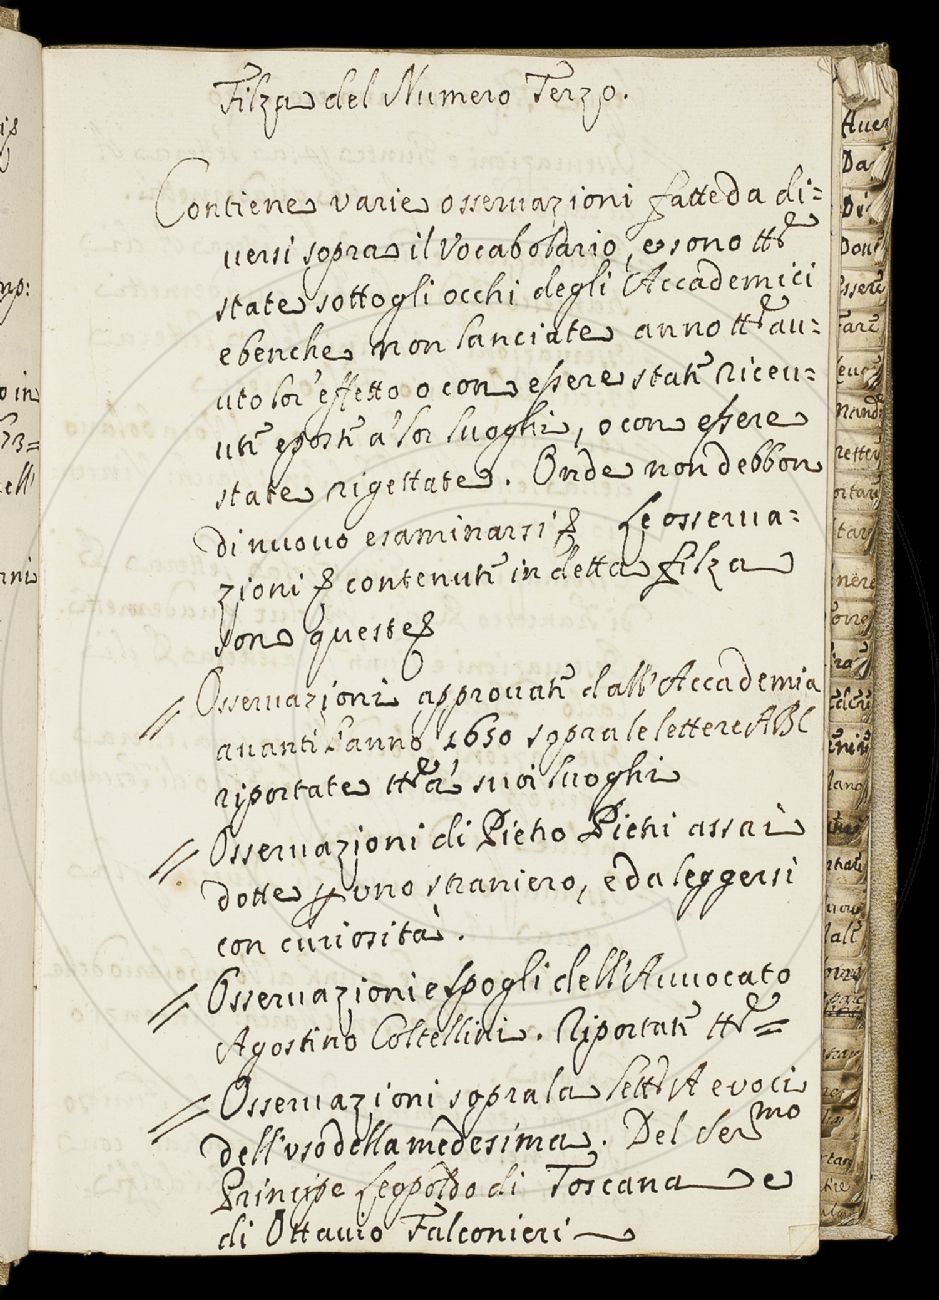 Filza del Numero Terzo.
Contiene varie osseruazioni fatte da di=
uersi sopra il Vocabolario, e sono tt.e
state sotto gli occhi degli Accademici
e benche non lanciate anno tt.e au=
uto lor' effetto o con essere state riceu=
ute e poste a' lor luoghi, o con essere
state rigettate. Onde non debbon
di nuouo esaminarsi Le osserua=
zioni contenute in detta filza
son queste
Osseruazioni approuate dall'Accademia
auanti l'anno 1650 sopra le lettere ABC
riportate tt.e a' suoi luoghi
Osseruazioni di Pietro Pieri assai
dotte p uno straniero, e da leggersi
con curiosità.
Osseruazioni e spogli dell'Auuocato
Agostino Coltellini. Riportate tt.e =
Osseruazioni sopra la lett.a A e voci
dell'uso della medesima. Del Ser.mo
Principe Leopoldo di Toscana e
di Ottauio Falconieri